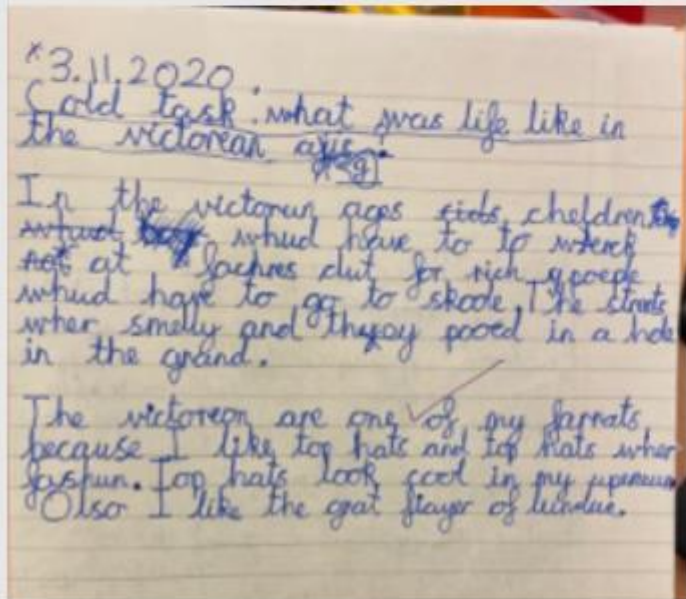 *3.11.2020.
Cold task: what was life like in
the victorean
g
In the victorun ages kids cheldren
whud whud have to to wherk
not at fachres but for rich poeple
whud have to go to skoole. The streets
wher smelly and they pooed in a hole
in the grand.
The victorean are one of my farrats
because I like top hats and top hats wher
fashun. Top hats look cool in my
Olso I like the grat fiayer of lundun.